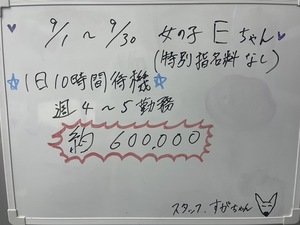 9/1～9/30 女の子 Eちゃん
(特別指名料なし)
1日10時間待機
週4～5勤務
約 600,000
スタッフ.すがちゃん